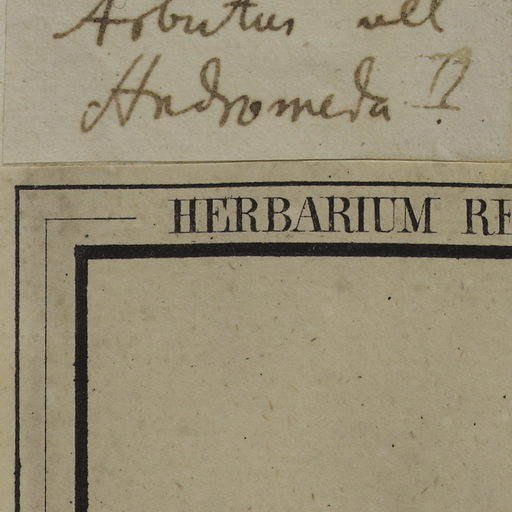 Arbutus vel
Andromeda
HERBARIUM RE